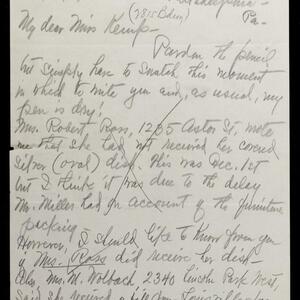 Pa.
(2815 Bdwy)
My dear Miss Kemp-
Pardon the pencil
but simply have to snatch this moment
in which to write you and, as usual, my
pen is dry!
Mrs. Robert Ross, 1235 Astor St. wrote
me that she had not received her covered
silver (oval) dish. This was Dec. 1st
but I think it was due to the delay
Mr. Miller had on account of the furniture
packing
However, I should like to know from you
if Mrs. Ross did receive her dish.
Also, Mrs. M. Wolbach, 2340 Lincoln Park West,
said she received a